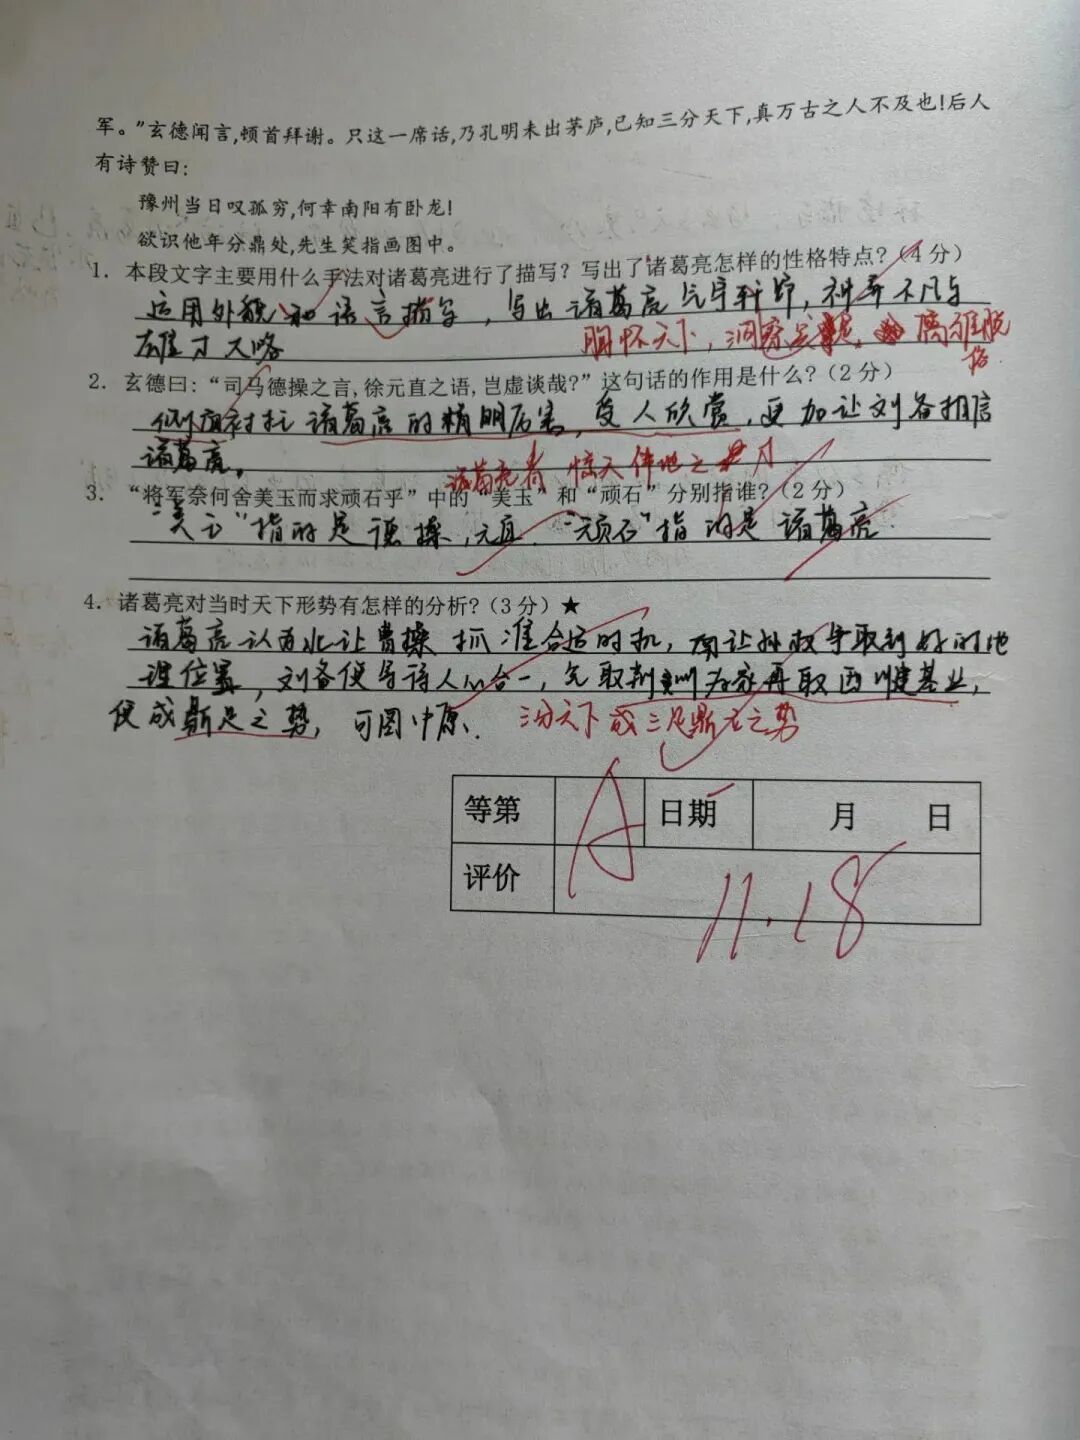 军。”玄德闻言,顿首拜谢。只这一席话,乃孔明未出茅庐,已知三分天下,真万古之人不及也!后人
有诗赞曰:
豫州当日叹孤穷,何幸南阳有卧龙!
欲识他年分鼎处,先生笑指画图中。
1. 本段文字主要用什么手法对诸葛亮进行了描写?写出了诸葛亮怎样的性格特点?(4分)
运用外貌和语言描写,写出诸葛亮气宇轩昂,神采不凡与
雄才大略
胸怀天下,洞察
2. 玄德曰:“司马德操之言,徐元直之语,岂虚谈哉?”这句话的作用是什么?(2分)
侧面衬托诸葛亮的精明厉害,受人欣赏,更加让刘备相信
诸葛亮。
诸葛亮者 惊天伟地之
3. “将军奈何舍美玉而求顽石乎”中的“美玉”和“顽石”分别指谁?(2分)
“美玉”指的是德操,元直.“顽石”指的是诸葛亮.
4. 诸葛亮对当时天下形势有怎样的分析?(3分)★
诸葛亮认为北让曹操抓准合适的时机,南让孙权争取到好的地
理位置,刘备便与诸人心合一,先取荆州为家再取西川建基业,
便成鼎足之势,可图中原.
三分天下 成三足鼎立之势
等第 A 日期 月 日
评价
11.18